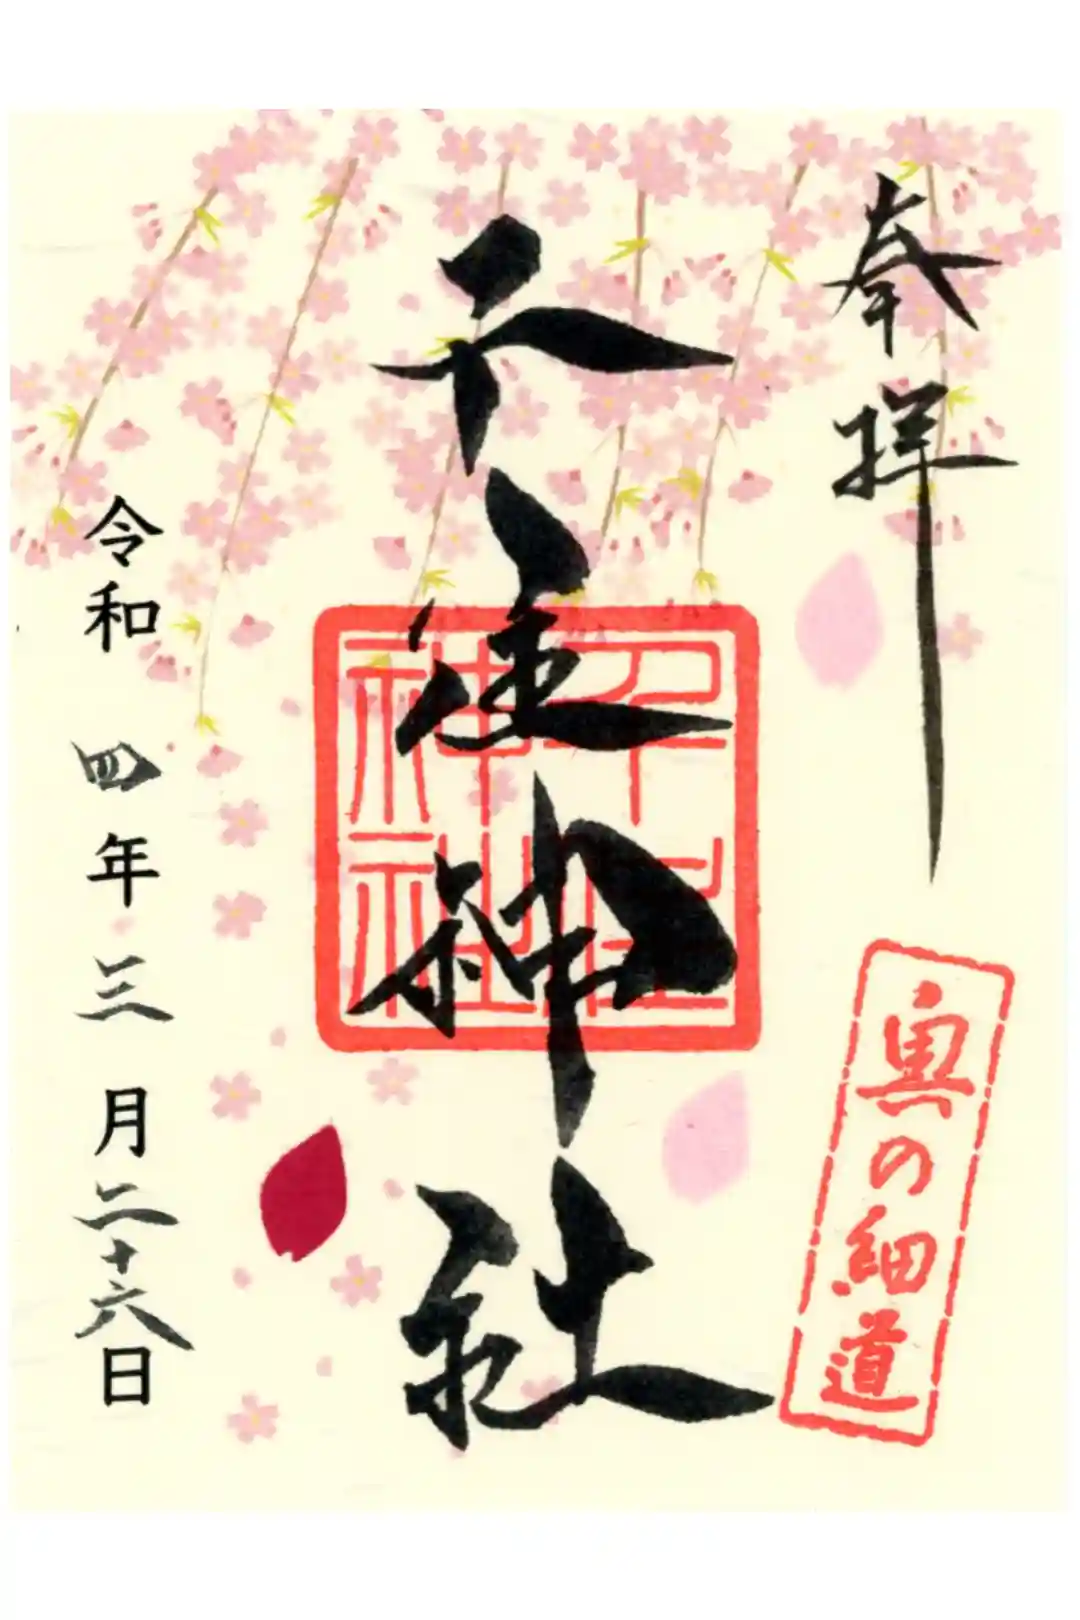 奉拝
奥の細道
千住神社
千住
神社
令和四年三月二十六日